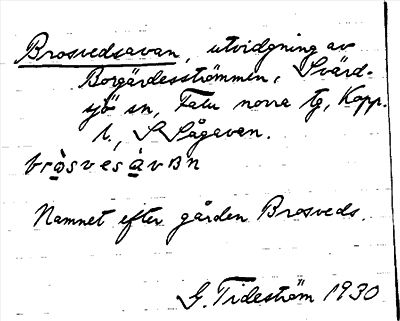 Brosvedsavan, utvidgning av
Borgärdesströmmen, Svärd-
sjö sn, Falu norra tg, Kopp.
l., S Sågavan.
bròsvesàvʙn
Namnet efter gården Brosveds.
G. Tideström 1930